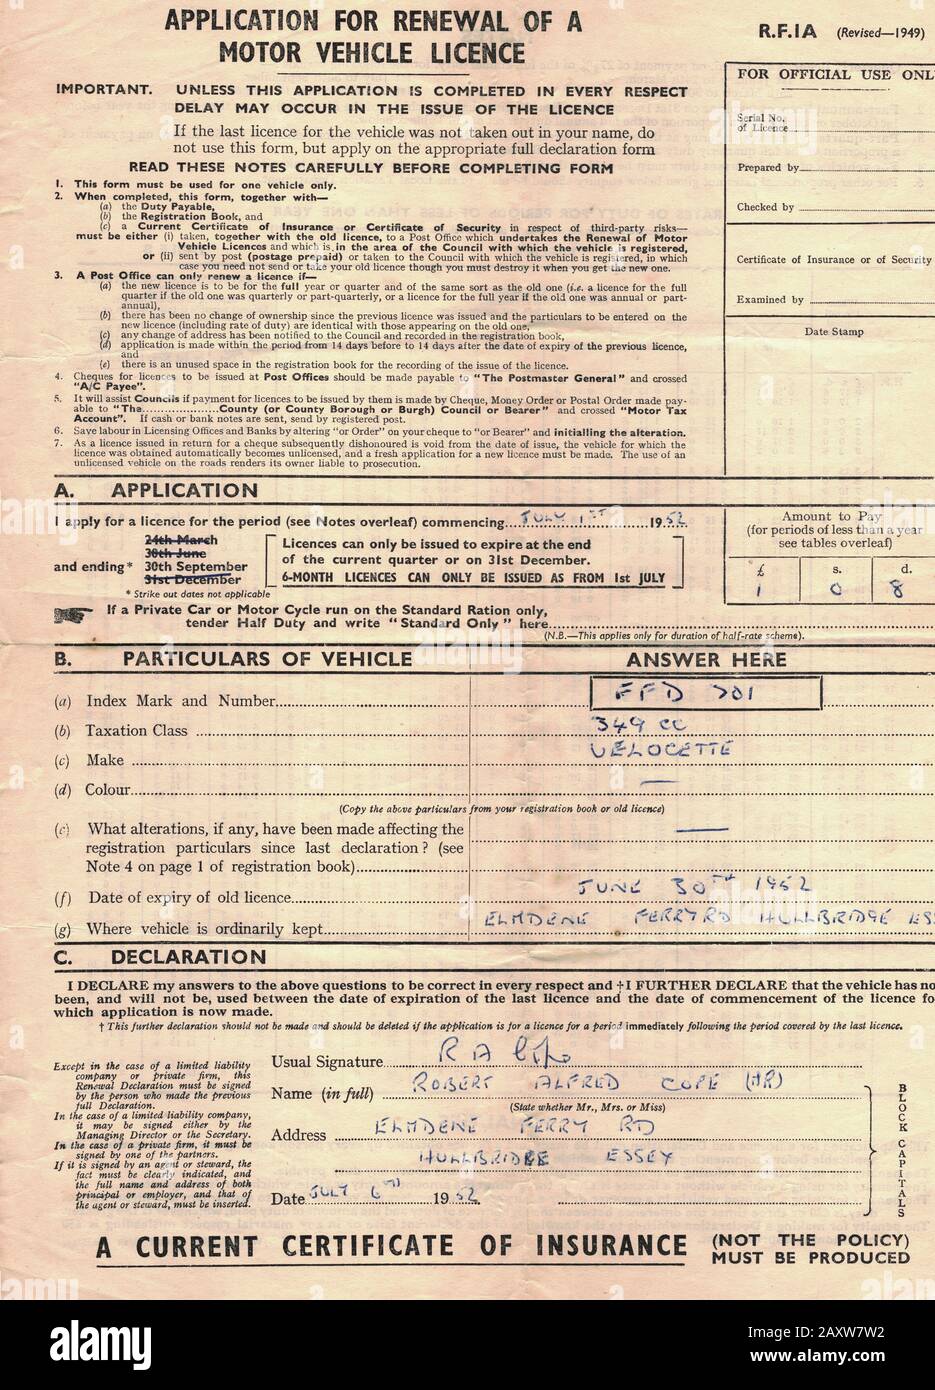 APPLICATION FOR RENEWAL OF A
MOTOR VEHICLE LICENCE
R.F.1A (Revised—1949)
IMPORTANT. UNLESS THIS APPLICATION IS COMPLETED IN EVERY RESPECT
DELAY MAY OCCUR IN THE ISSUE OF THE LICENCE
If the last licence for the vehicle was not taken out in your name, do
not use this form, but apply on the appropriate full declaration form
READ THESE NOTES CAREFULLY BEFORE COMPLETING FORM
1. This form must be used for one vehicle only.
2. When completed, this form, together with—
(a) the Duty Payable,
(b) the Registration Book, and
(c) a Current Certificate of Insurance or Certificate of Security in respect of third-party risks—
must be either (i) taken, together with the old licence, to a Post Office which undertakes the Renewal of Motor
Vehicle Licences and which is in the area of the Council with which the vehicle is registered,
or (ii) sent by post (postage prepaid) or taken to the Council with which the vehicle is registered, in which
case you need not send or take your old licence though you must destroy it when you get the new one.
3. A Post Office can only renew a licence if—
(a) the new licence is to be for the full year or quarter and of the same sort as the old one (i.e. a licence for the full
quarter if the old one was quarterly or part-quarterly, or a licence for the full year if the old one was annual or part-
annual),
(b) there has been no change of ownership since the previous licence was issued and the particulars to be entered on the
new licence (including rate of duty) are identical with those appearing on the old one,
(c) any change of address has been notified to the Council and recorded in the registration book,
(d) application is made within the period from 14 days before to 14 days after the date of expiry of the previous licence,
and
(e) there is an unused space in the registration book for the recording of the issue of the licence.
4. Cheques for licences to be issued at Post Offices should be made payable to "The Postmaster General" and crossed
"A/C Payee".
5. It will assist Councils if payment for licences to be issued by them is made by Cheque, Money Order or Postal Order made pay-
able to "The....................County (or County Borough or Burgh) Council or Bearer" and crossed "Motor Tax
Account". If cash or bank notes are sent, send by registered post.
6. Save labour in Licensing Offices and Banks by altering "or Order" on your cheque to "or Bearer" and initialling the alteration.
7. As a licence issued in return for a cheque subsequently dishonoured is void from the date of issue, the vehicle for which the
licence was obtained automatically becomes unlicensed, and a fresh application for a new licence must be made. The use of an
unlicensed vehicle on the roads renders its owner liable to prosecution.
FOR OFFICIAL USE ONL
Serial No.
of Licence
Prepared by
Checked by
Certificate of Insurance or of Security
Examined by
Date Stamp
A. APPLICATION
I apply for a licence for the period (see Notes overleaf) commencing JULY 1ST 1952
24th March
30th June
and ending* 30th September
31st December
* Strike out dates not applicable
Licences can only be issued to expire at the end
of the current quarter or on 31st December.
6-MONTH LICENCES CAN ONLY BE ISSUED AS FROM 1st JULY
Amount to Pay
(for periods of less than a year
see tables overleaf)
£ s. d.
1 0 8
If a Private Car or Motor Cycle run on the Standard Ration only,
tender Half Duty and write "Standard Only" here
(N.B.—This applies only for duration of half-rate scheme).
B. PARTICULARS OF VEHICLE ANSWER HERE
(a) Index Mark and Number FFD 701
(b) Taxation Class 349 CC
(c) Make VELOCETTE
(d) Colour —
(Copy the above particulars from your registration book or old licence)
(e) What alterations, if any, have been made affecting the —
registration particulars since last declaration? (see
Note 4 on page 1 of registration book)
(f) Date of expiry of old licence JUNE 30TH 1952
(g) Where vehicle is ordinarily kept ELMDENE FERRY RD HULLBRIDGE ESS
C. DECLARATION
I DECLARE my answers to the above questions to be correct in every respect and †I FURTHER DECLARE that the vehicle has no
been, and will not be, used between the date of expiration of the last licence and the date of commencement of the licence fo
which application is now made.
† This further declaration should not be made and should be deleted if the application is for a licence for a period immediately following the period covered by the last licence.
Except in the case of a limited liability
company or private firm, this
Renewal Declaration must be signed
by the person who made the previous
full Declaration.
In the case of a limited liability company,
it may be signed either by the
Managing Director or the Secretary.
In the case of a private firm, it must be
signed by one of the partners.
If it is signed by an agent or steward, the
fact must be clearly indicated, and
the full name and address of both
principal or employer, and that of
the agent or steward, must be inserted.
Usual Signature R A Cope
Name (in full) ROBERT ALFRED COPE (MR)
(State whether Mr., Mrs. or Miss)
Address ELMDENE FERRY RD
HULLBRIDGE ESSEX
Date JULY 6TH 1952.
BLOCK CAPITALS
A CURRENT CERTIFICATE OF INSURANCE (NOT THE POLICY)
MUST BE PRODUCED
alamy
Image ID: 2AXW7W2
www.alamy.com